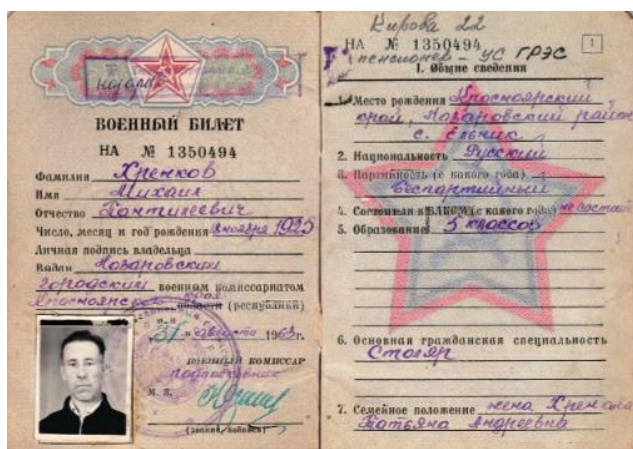 ВОЕННЫЙ БИЛЕТ
НА № 1350494
Фамилия Хренков
Имя Михаил
Отчество Пантилеевич
Число, месяц и год рождения 8 ноября 1925
Личная подпись владельца
Выдан Назаровским
городским военным комиссариатом
Красноярского края области (республики)
"31" августа 1963 г.
ВОЕННЫЙ КОМИССАР
подполковник
М. П.
(звание, подпись)
Кирова 22
НА № 1350494
1
пенсионер - УС ГРЭС
I. Общие сведения
1. Место рождения Красноярский
край, Назаровский район
с. Ельник
2. Национальность Русский
3. Партийность (с какого года)
беспартийный
4. Состоял ли в ВЛКСМ (с какого года) не состоял
5. Образование 5 классов
6. Основная гражданская специальность
Столяр
7. Семейное положение жена Хренкова
Татьяна Андреевна